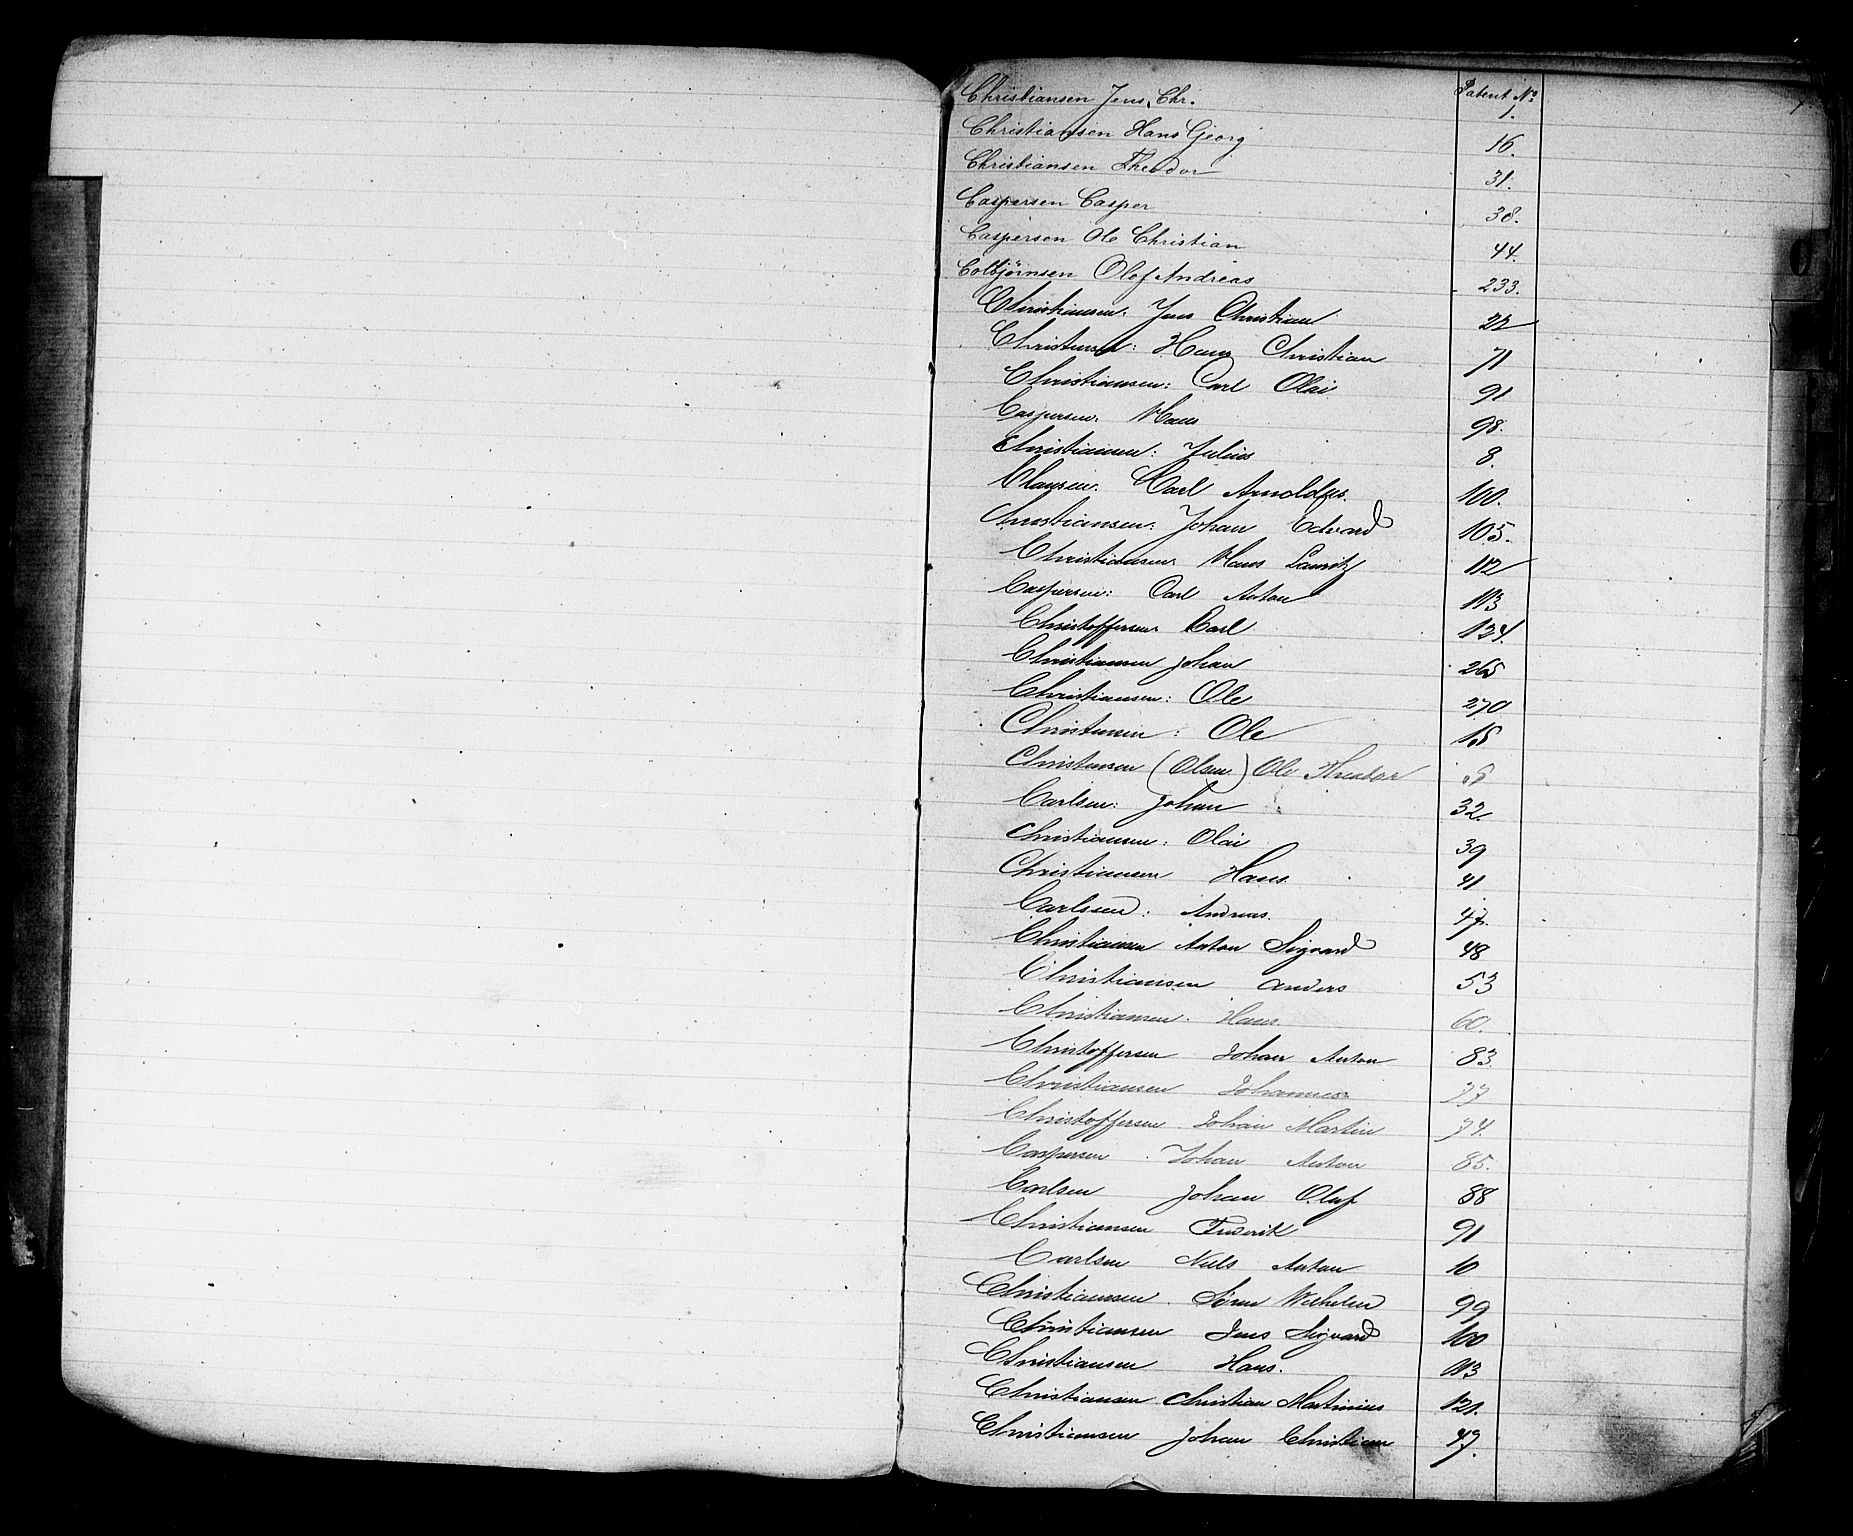 Patent No
Christiansen Jens, Chr. 1.
Christiansen Hans Georg 16.
Christiansen Theodor 31.
Caspersen Casper 38.
Caspersen Ole Christian 44.
Colbjørnsen Olof Andreas 233.
Christiansen: Jens Christian 22
Christensen: Hans Christian 71
Christiansen: Carl Olai 91
Caspersen: Hans 98.
Christiansen: Julius 8.
Clausen: Carl Arnoldus. 100.
Christiansen: Johan Edvard 105.
Christiansen Hans Lauritz 112
Caspersen: Carl Anton 113
Christoffersen Carl 124.
Christiansen Johan 265
Christiansen: Ole 270
Christensen: Ole 15
Christensen (Olsen) Ole Theodor 8
Carlsen: Johan 32.
Christiansen: Olai 39
Christiansen Hans 41
Carlssen: Andreas. 47.
Christiansen Anton Sigvard 48
Christiansen Anders 53
Christiansen. Hans. 60.
Christoffersen Johan Anton 83
Christiansen Johannes 77
Christoffersen Johan Martin 74.
Caspersen Johan Anton 85.
Carlsen Johan Oluf 88
Christiansen Fredrik 91
Carlsen Niels Anton 10
Christiansen Søren Wilhelm 99
Christiansen Jens Sigvard 100
Christiansen Hans. 113
Christiansen Christian Martinius 121.
Christiansen Johan Christian 47.
C